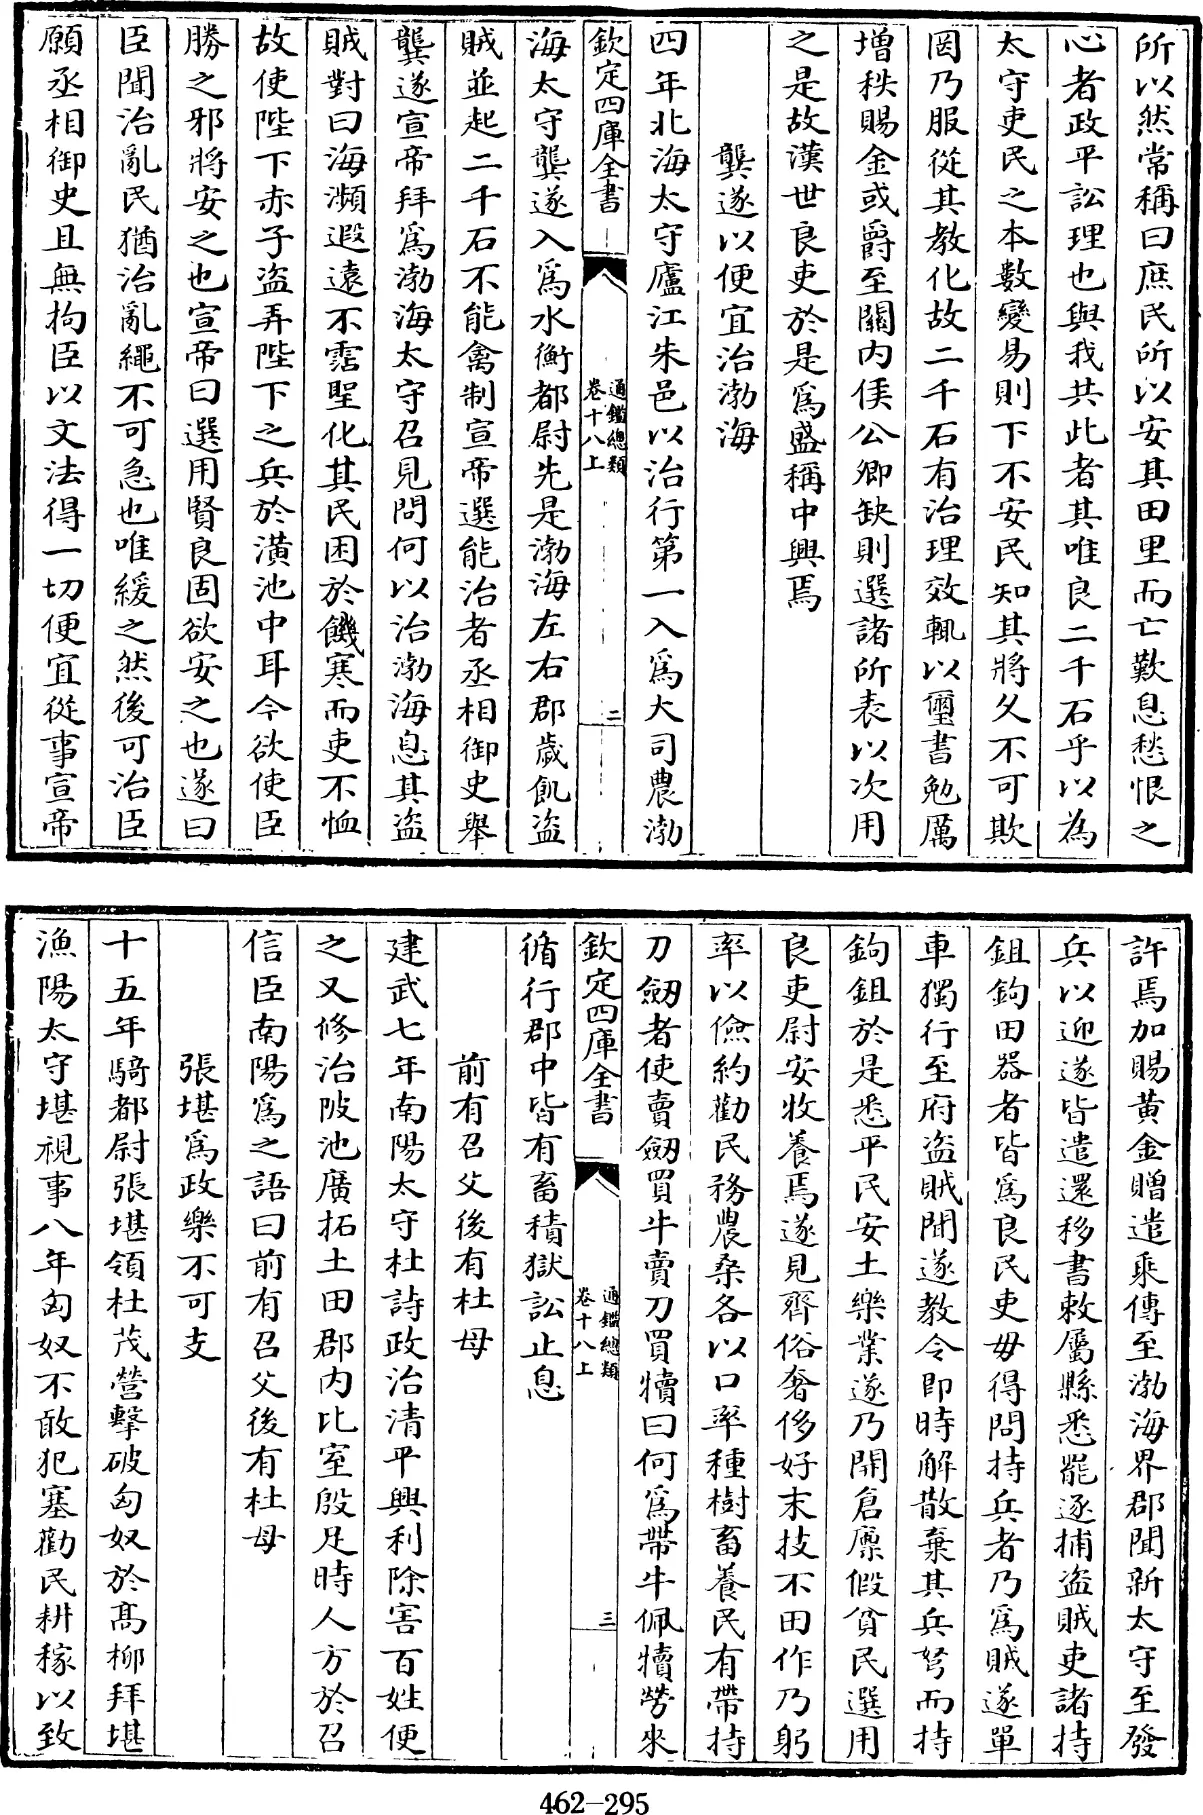 所以然常稱曰庶民所以安其田里而亡歎息愁恨之
心者政平訟理也與我共此者其唯良二千石乎以為
太守吏民之本數變易則下不安民知其將久不可欺
罔乃服從其教化故二千石有治理效輒以璽書勉厲
增秩賜金或爵至關內侯公卿缺則選諸所表以次用
之是故漢世良吏於是爲盛稱中興焉
龔遂以便宜治渤海
四年北海太守廬江朱邑以治行第一入爲大司農渤
欽定四庫全書
通鑑總類
卷十八上
二
海太守龔遂入爲水衡都尉先是渤海左右郡歲飢盜
賊並起二千石不能禽制宣帝選能治者丞相御史舉
龔遂宣帝拜爲渤海太守召見問何以治渤海息其盜
賊對曰海瀕遐遠不霑聖化其民困於饑寒而吏不恤
故使陛下赤子盜弄陛下之兵於潢池中耳今欲使臣
勝之邪將安之也宣帝曰選用賢良固欲安之也遂曰
臣聞治亂民猶治亂繩不可急也唯緩之然後可治臣
願丞相御史且無拘臣以文法得一切便宜從事宣帝
許焉加賜黃金贈遣乘傳至渤海界郡聞新太守至發
兵以迎遂皆遣還移書敕屬縣悉罷逐捕盜賊吏諸持
鉏鉤田器者皆爲良民吏毋得問持兵者乃爲賊遂單
車獨行至府盜賊聞遂教令即時解散棄其兵弩而持
鉤鉏於是悉平民安土樂業遂乃開倉廩假貧民選用
良吏尉安牧養焉遂見齊俗奢侈好末技不田作乃躬
率以儉約勸民務農桑各以口率種樹畜養民有帶持
刀劒者使賣劒買牛賣刀買犢曰何爲帶牛佩犢勞來
欽定四庫全書
通鑑總類
卷十八上
三
循行郡中皆有畜積獄訟止息
前有召父後有杜母
建武七年南陽太守杜詩政治清平興利除害百姓便
之又修治陂池廣拓土田郡內比室殷足時人方於召
信臣南陽爲之語曰前有召父後有杜母
張堪爲政樂不可支
十五年騎都尉張堪領杜茂營擊破匈奴於髙柳拜堪
漁陽太守堪視事八年匈奴不敢犯塞勸民耕稼以致
462-295